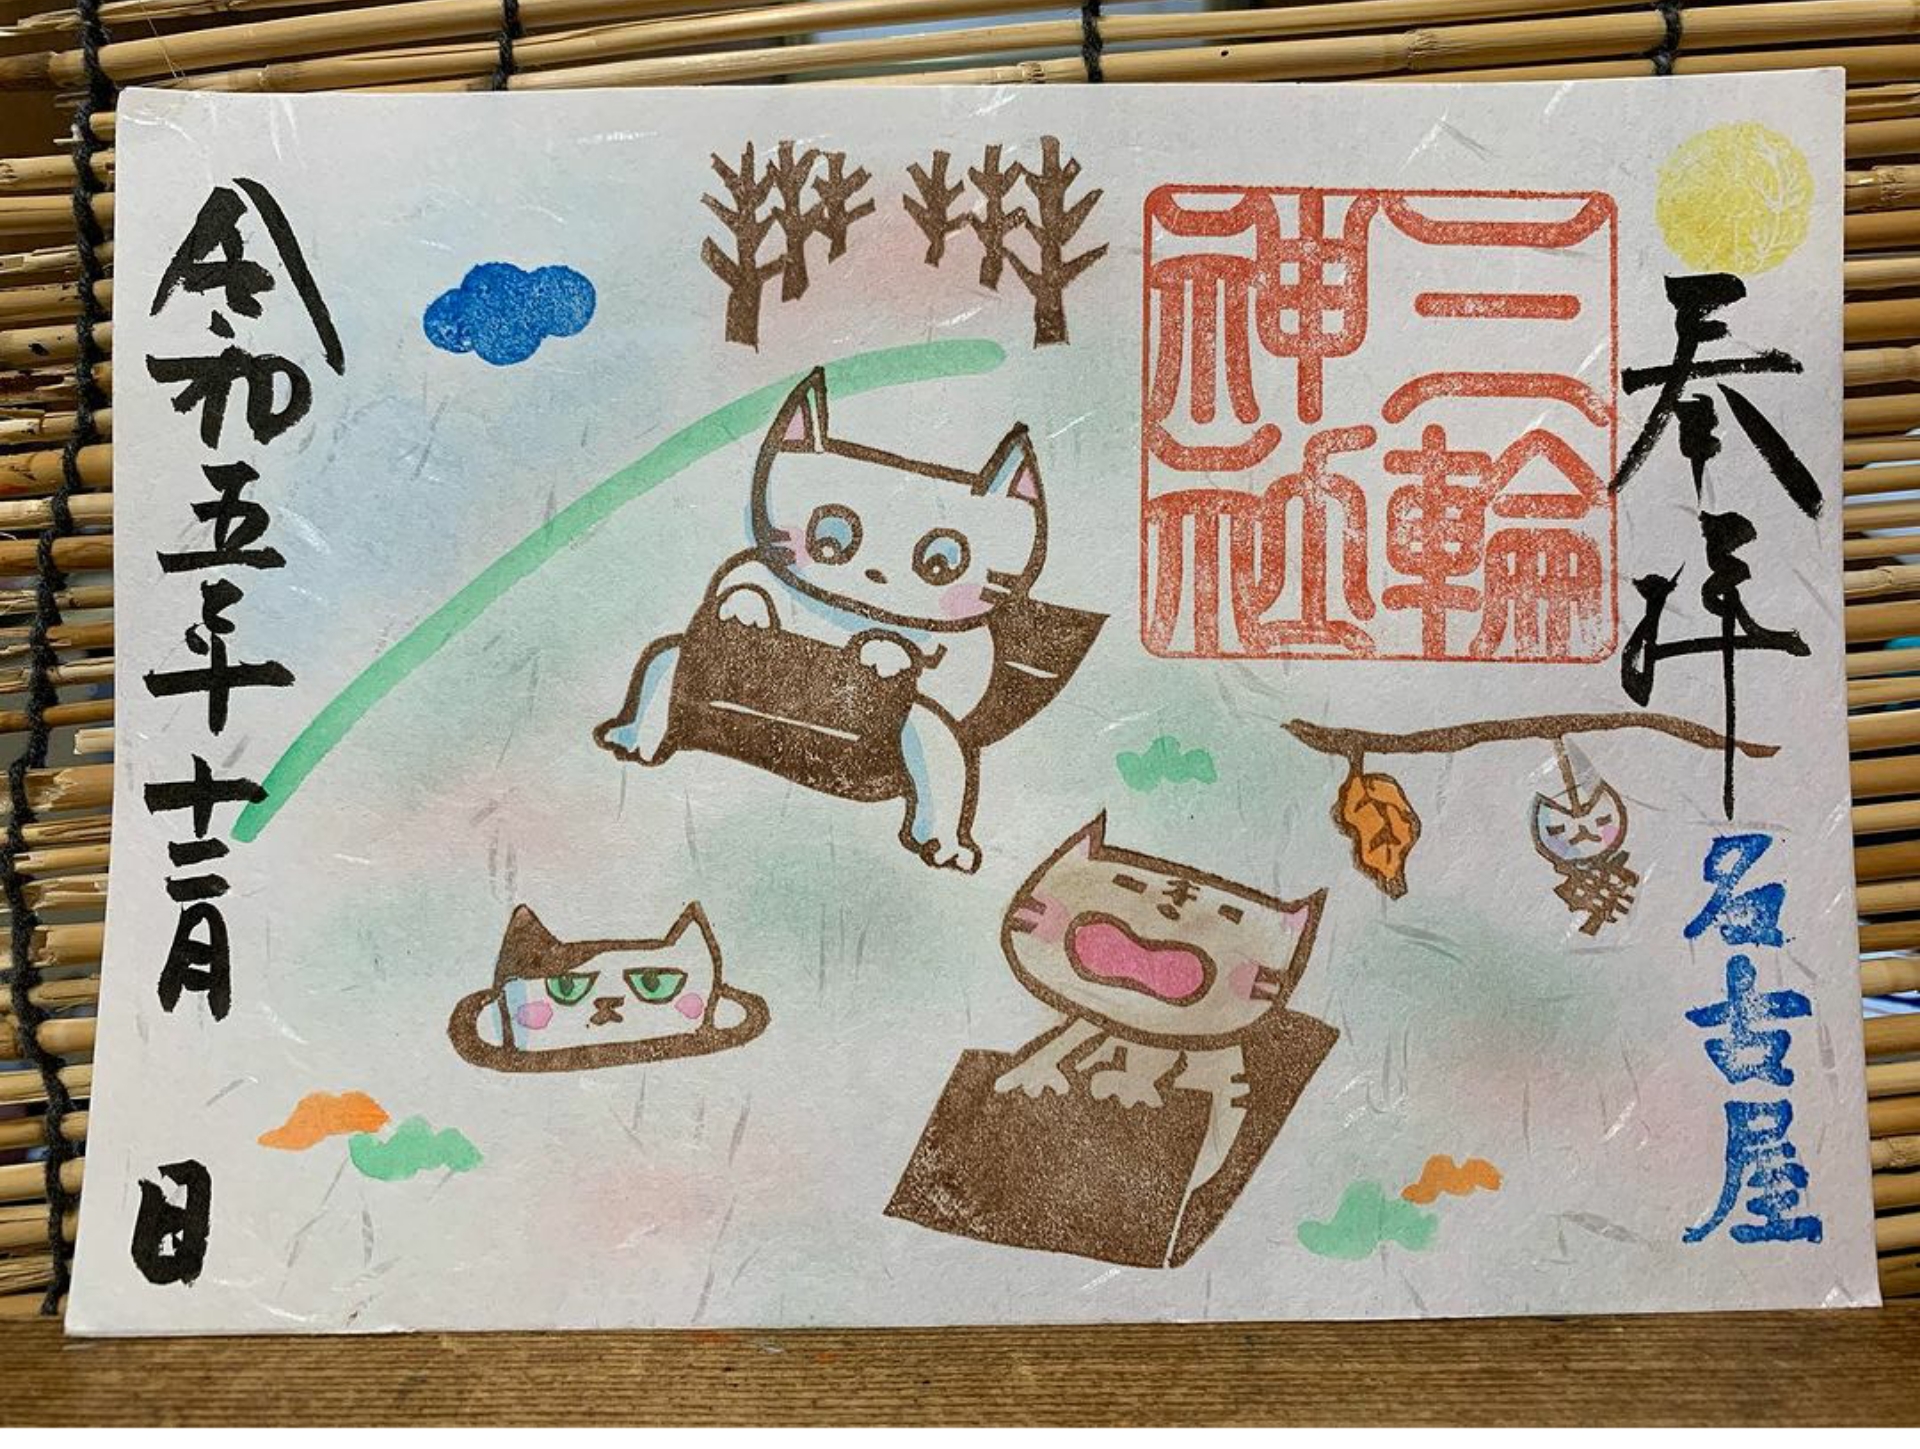 奉拝
三輪
神社
名古屋
令和五年十二月 日